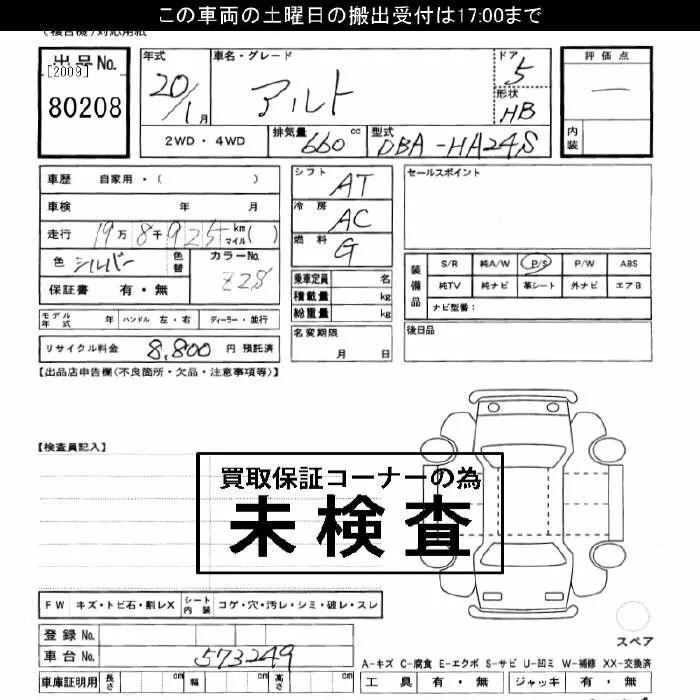 この車両の土曜日の搬出受付は17:00まで
(複合機)対応用紙
出品No.
[2009]
80208
年式
20/1月
車名・グレード
アルト
ドア
5
形状
HB
評価点
—
内装
2WD・4WD
排気量 660 cc
型式 DBA-HA24S
車歴 自家用・( )
車検 年 月
走行 19万8千925 km マイル( )
色 シルバー 色替 カラーNo. Z2S
保証書 有・無
シフト AT
冷房 AC
燃料 G
乗車定員 名
積載量 kg
総重量 kg
セールスポイント
装備品
S/R 純A/W P/S P/W ABS
純TV 純ナビ 革シート 外ナビ エアB
ナビ型番:
モデル年式 年 ハンドル 左・右 ディーラー・並行
名変期限
月 日
後日品
リサイクル料金 8,800 円 預託済
【出品店申告欄(不良箇所・欠品・注意事項等)】
【検査員記入】
買取保証コーナーの為
未検査
FW キズ・トビ石・割レX シート内装 コゲ・穴・汚レ・シミ・破レ・スレ
スペア
登録No.
車台No. 573249
A-キズ C-腐食 E-エクボ S-サビ U-凹ミ W-補修 XX-交換済
車庫証明用 長さ cm 幅 cm 高さ cm
工具 有・無 ジャッキ 有・無